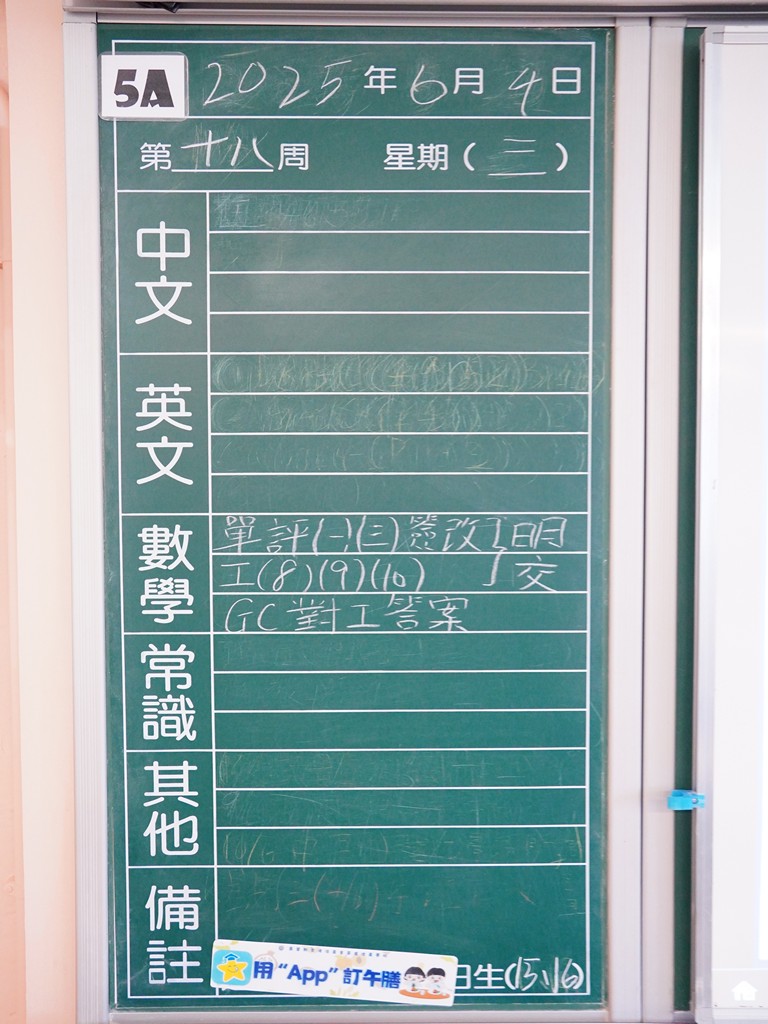 5A 2025年6月4日
第十八周 星期(三)
中文
英文
數學
單評(一)(三)簽改 明
工(8)(9)(10) 交
GC對工答案
常識
其他
備註
用“App”訂午膳
日生(15、16)